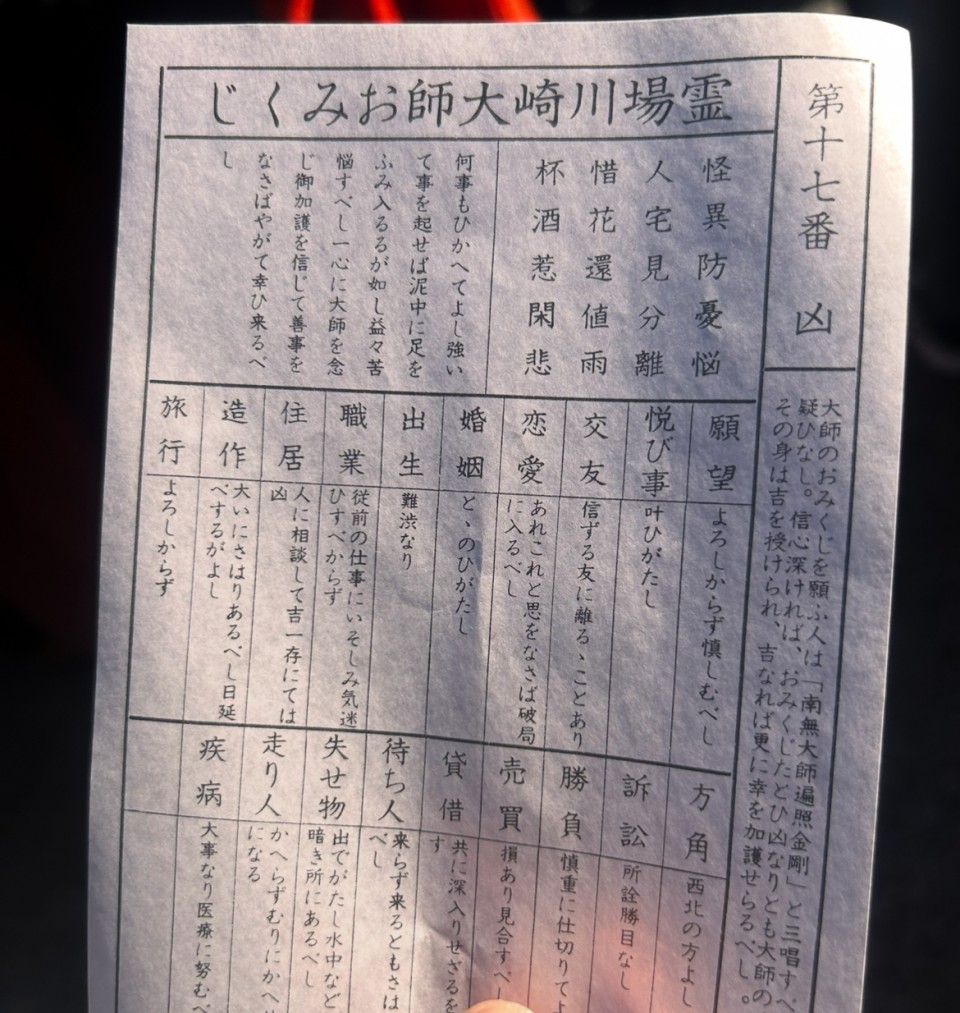 霊場川崎大師おみくじ
第十七番 凶
大師のおみくじを願ふ人は「南無大師遍照金剛」と三唱すべ
疑ひなし。信心深ければ、おみくじたとひ凶なりとも大師の
その身は吉を授けられ、吉なれば更に幸を加護せらるべし。
怪異防憂悩
人宅見分離
惜花還値雨
杯酒惹閑悲
何事もひかへてよし強い
て事を起せば泥中に足を
ふみ入るるが如し益々苦
悩すべし一心に大師を念
じ御加護を信じて善事を
なさばやがて幸ひ来るべ
し
願望
よろしからず慎しむべし
悦び事
叶ひがたし
交友
信ずる友に離るゝことあり
恋愛
あれこれと思をなさば破局
に入るべし
婚姻
とゝのひがたし
出生
難渋なり
職業
従前の仕事にいそしみ気迷
ひすべからず
住居
人に相談して吉一存にては
凶
造作
大いにさはりあるべし日延
べするがよし
旅行
よろしからず
方角
西北の方よし
訴訟
所詮勝目なし
勝負
慎重に仕切りてよ
売買
損あり見合すべし
貸借
共に深入りせざるを
す
待ち人
来らず来るともさは
べし
失せ物
出でがたし水中など
暗き所にあるべし
走り人
かへらずむりにかへ
になる
疾病
大事なり医療に努むべ